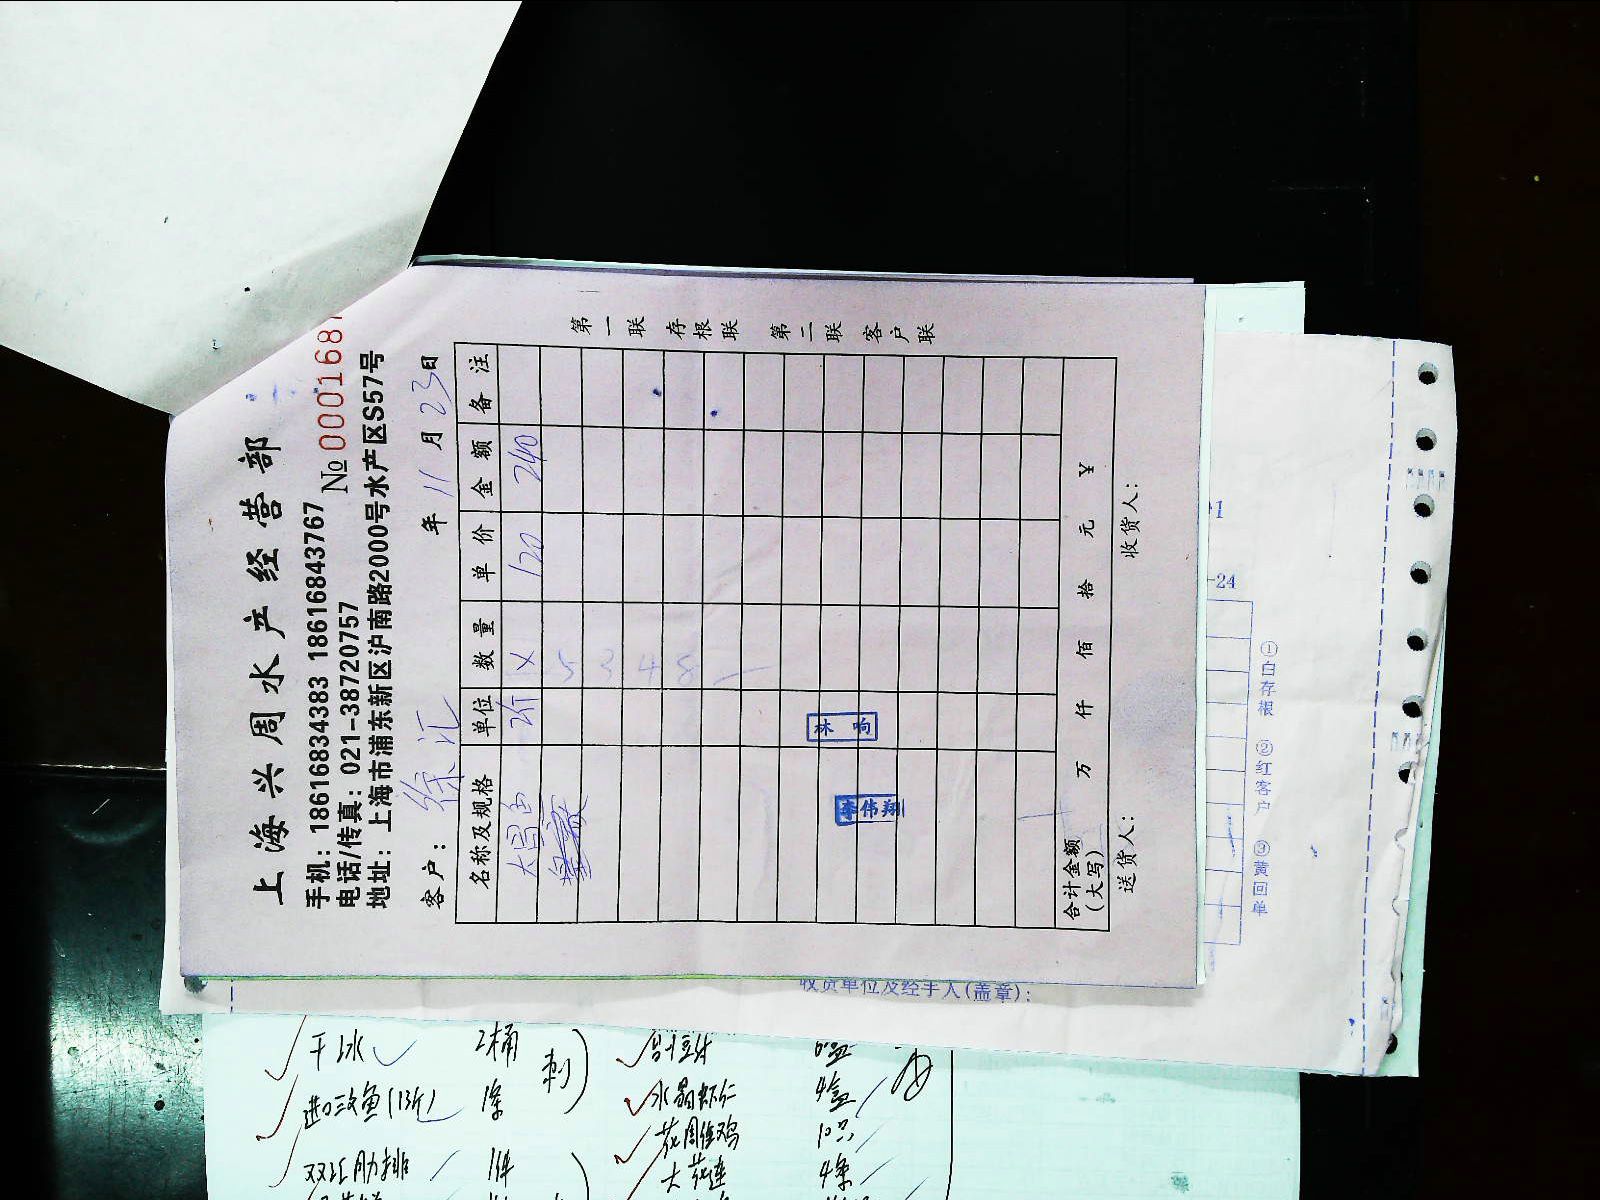 上海兴周水产经营部
手机：18616834383 18616843767
电话/传真：021-38720757 № 0001687
地址：上海市浦东新区沪南路2000号水产区S57号
客户：徐汇 年 11 月 23 日
名称及规格 单位 数量 单价 金额 备注
2斤 120 240
5 3 4 8
李伟翔
合计金额（大写） 万 仟 佰 拾 元 ￥
送货人： 收货人：
第一联 存根联 第二联 客户联
-24
①白存根 ②红客户 ③黄回单
收货单位及经手人(盖章):
干冰 2桶
刺
进口三文鱼(13斤) 1条
双汇肋排 1件
水晶虾仁 4盒
花雕鸡
大花连 4条